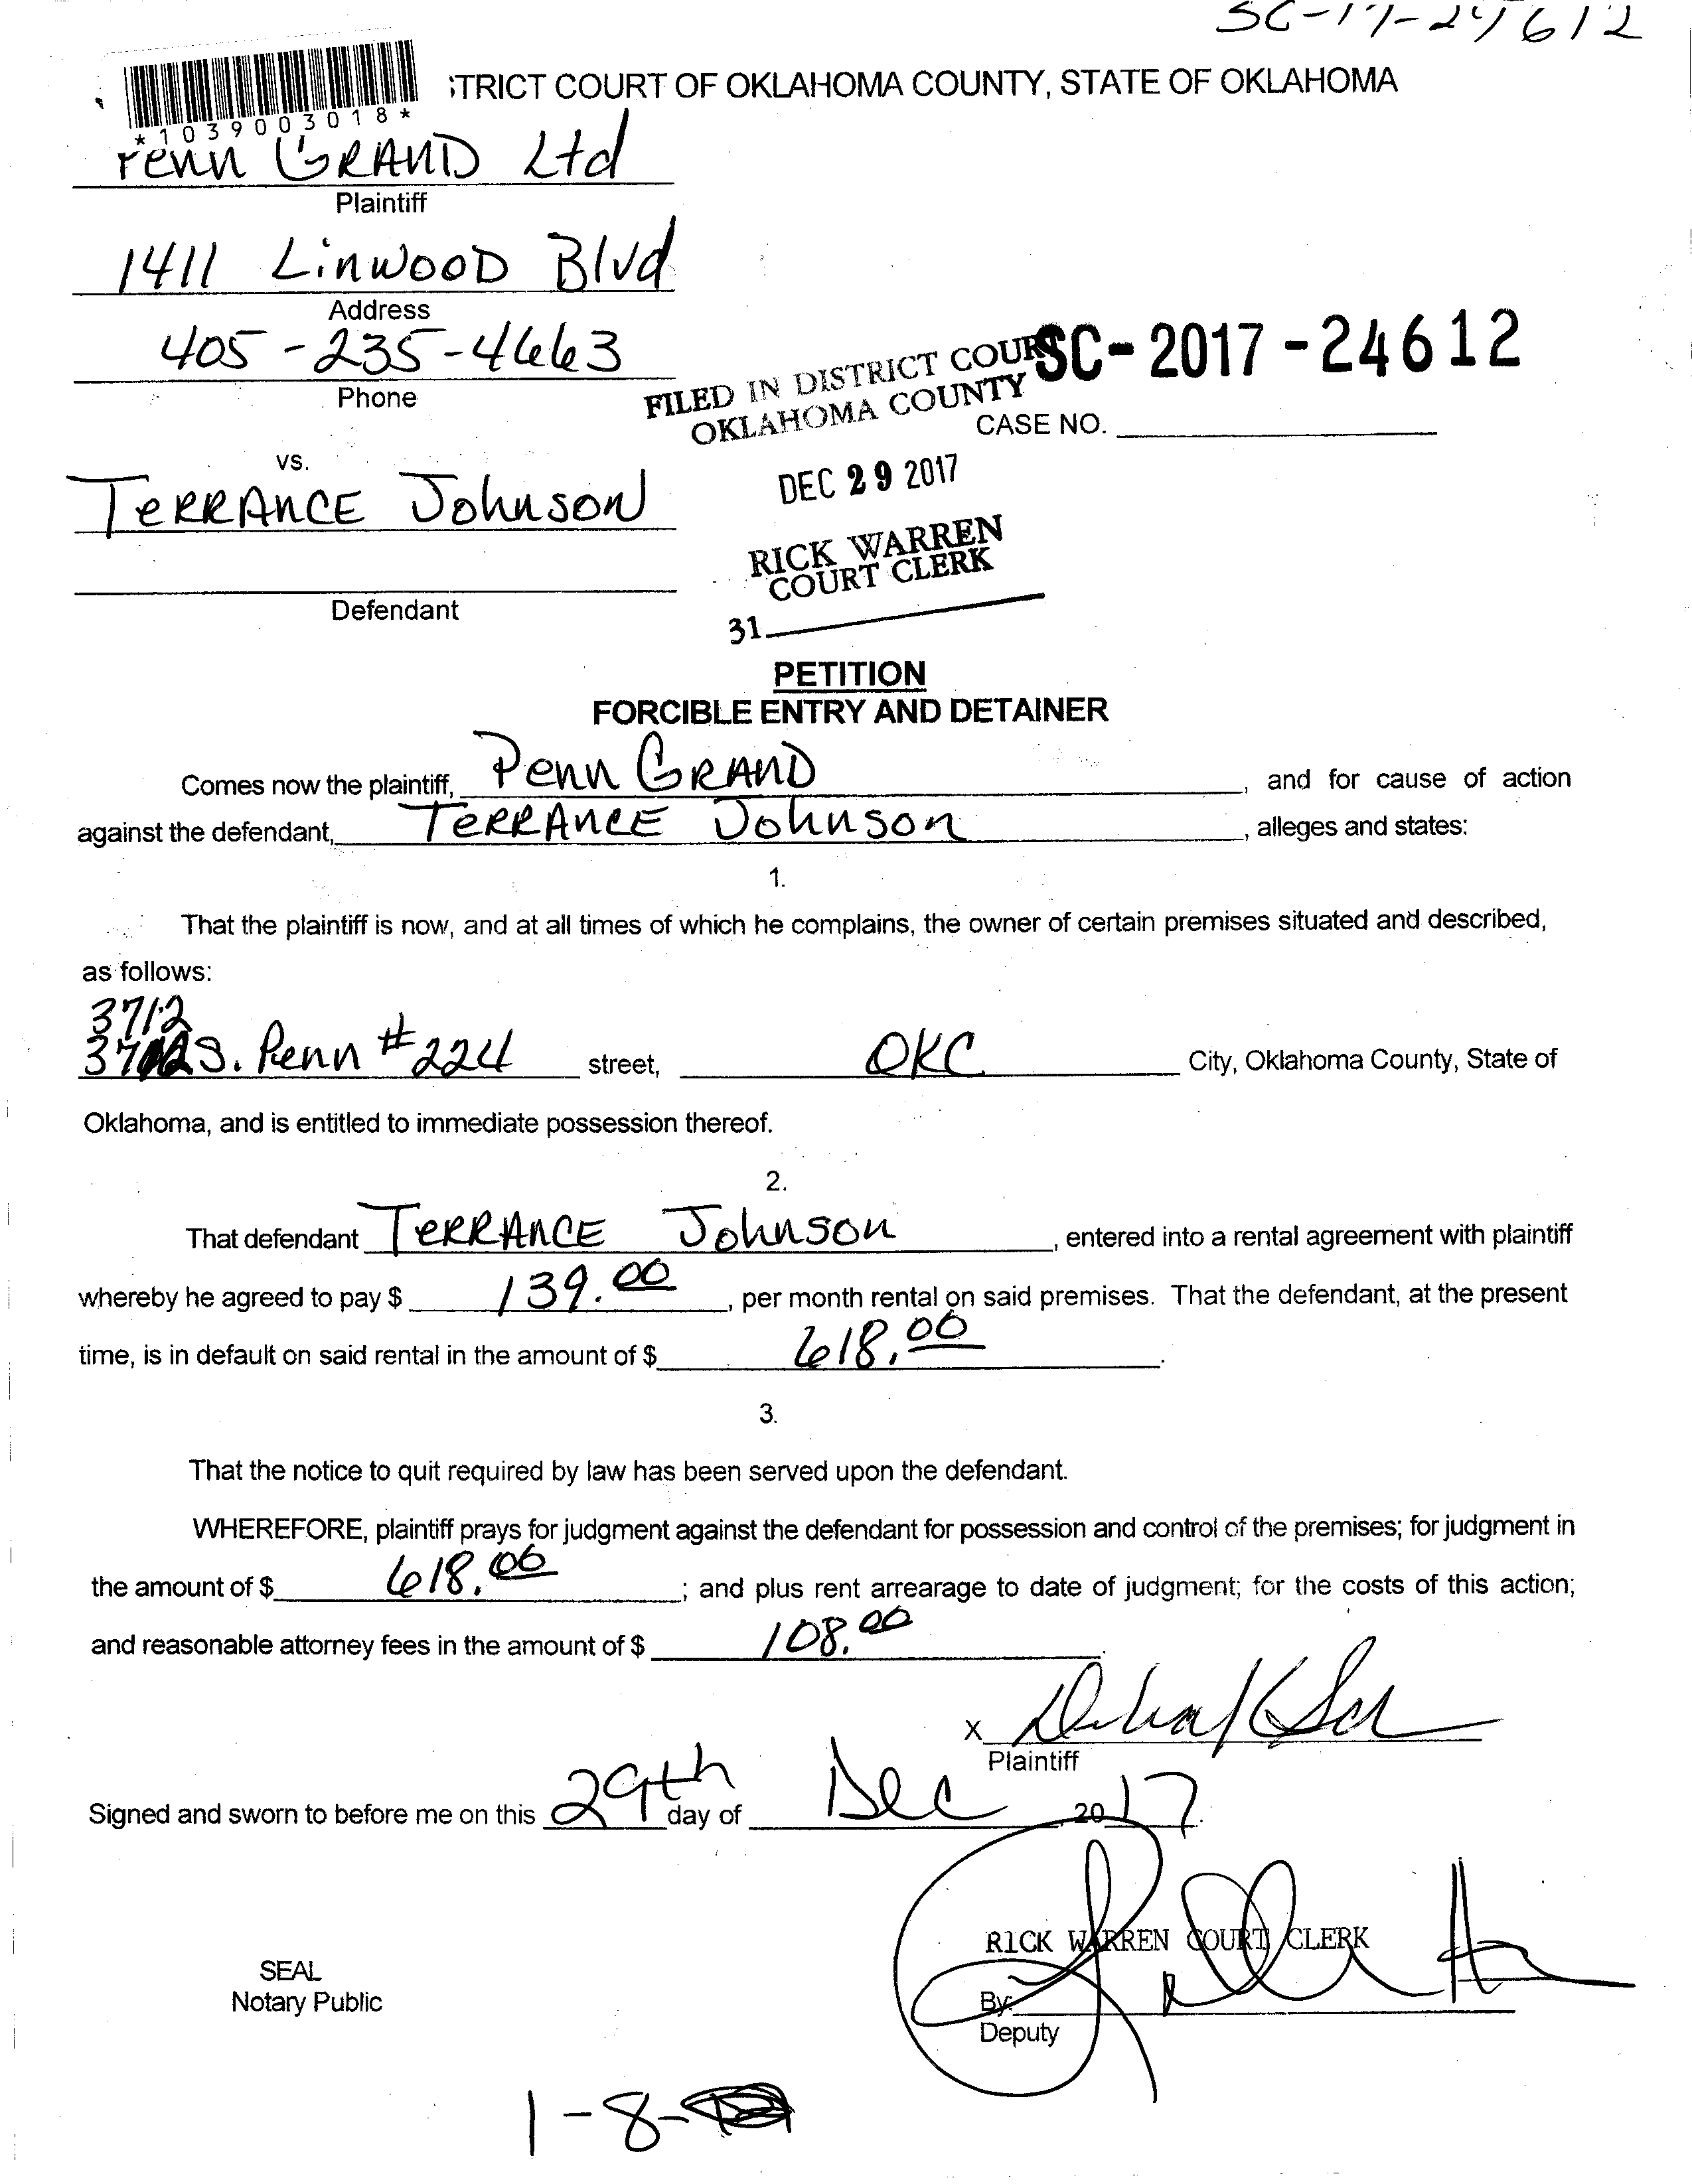 SC-17-24612
*1039003018*
STRICT COURT OF OKLAHOMA COUNTY, STATE OF OKLAHOMA
Penn GRAND Ltd
Plaintiff
1411 LinwooD Blvd
Address
405-235-4663
Phone
FILED IN DISTRICT COURT
OKLAHOMA COUNTY
SC-2017-24612
CASE NO.
DEC 29 2017
RICK WARREN
COURT CLERK
31
vs.
TeRRANCE Johnson
Defendant
PETITION
FORCIBLE ENTRY AND DETAINER
Comes now the plaintiff, Penn GRAND, and for cause of action
against the defendant, TeRRANCE Johnson, alleges and states:
1.
That the plaintiff is now, and at all times of which he complains, the owner of certain premises situated and described,
as follows:
3712
S. Penn #224 street, OKC City, Oklahoma County, State of
Oklahoma, and is entitled to immediate possession thereof.
2.
That defendant TeRRANCE Johnson, entered into a rental agreement with plaintiff
whereby he agreed to pay $ 139.00, per month rental on said premises. That the defendant, at the present
time, is in default on said rental in the amount of $ 618.00.
3.
That the notice to quit required by law has been served upon the defendant.
WHEREFORE, plaintiff prays for judgment against the defendant for possession and control of the premises; for judgment in
the amount of $ 618.00; and plus rent arrearage to date of judgment; for the costs of this action;
and reasonable attorney fees in the amount of $ 108.00.
X
Plaintiff
Signed and sworn to before me on this 29th day of Dec, 2017.
RICK WARREN COURT CLERK
SEAL
Notary Public
By:
Deputy
1-8-